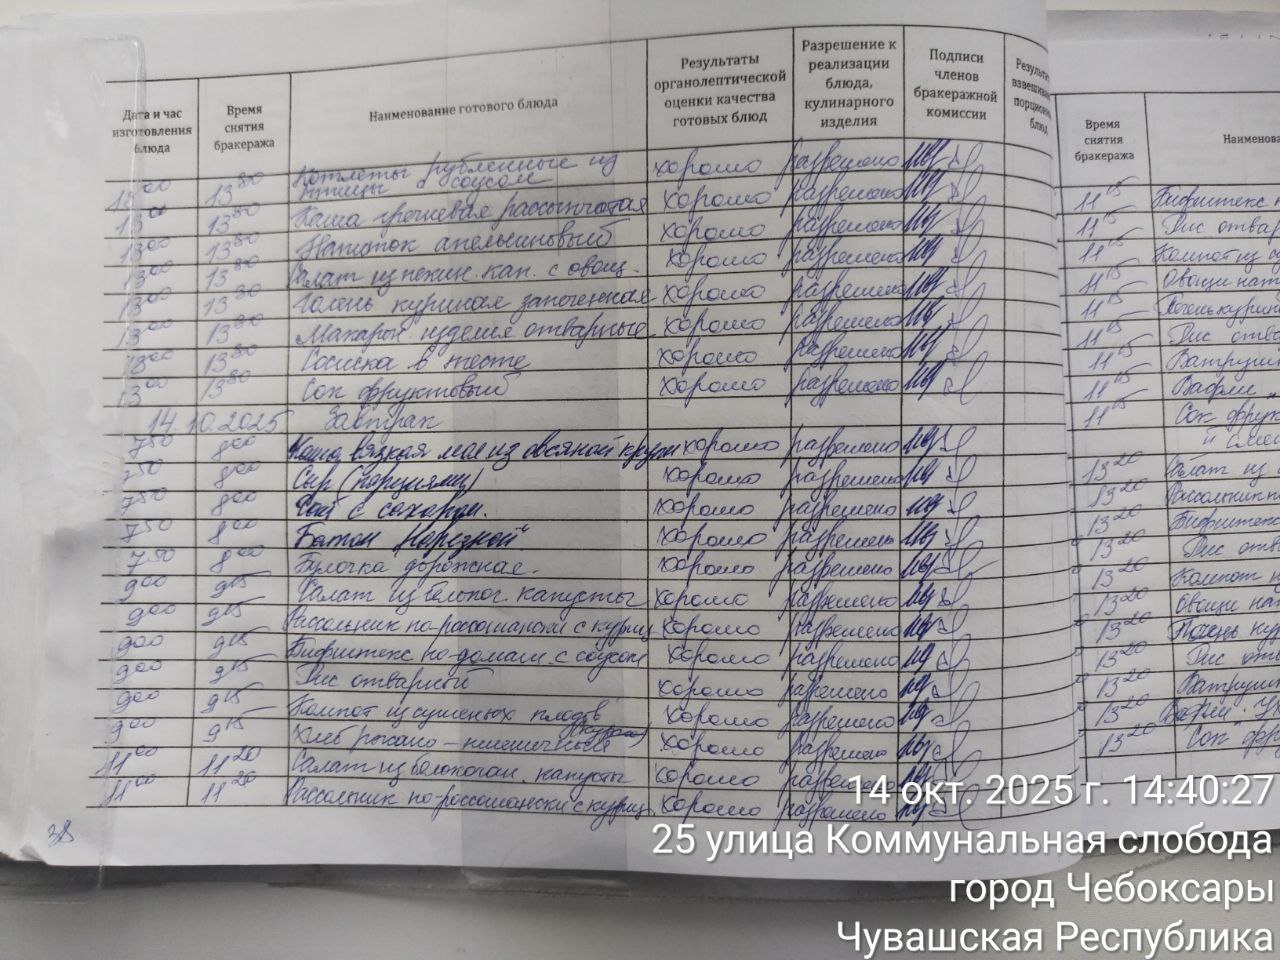 Дата и час изготовления блюда | Время снятия бракеража | Наименование готового блюда | Результаты органолептической оценки качества готовых блюд | Разрешение к реализации блюда, кулинарного изделия | Подписи членов бракеражной комиссии
13 00 13 80 Котлеты рубленные из птицы с соусом хорошо разрешено
13 00 13 80 Каша гречневая рассыпчатая хорошо разрешено
13 00 13 80 Напиток апельсиновый хорошо разрешено
13 00 13 80 Салат из пекин. кап. с овощ. хорошо разрешено
13 00 13 80 Голень куриная запеченная хорошо разрешено
13 00 13 80 Макарон. изделия отварные хорошо разрешено
13 00 13 80 Сосиска в тесте хорошо разрешено
13 00 13 80 Сок фруктовый хорошо разрешено
14.10.2025 Завтрак
7 50 8 00 Каша вязкая мол из овсяной крупы хорошо разрешено
7 50 8 00 Сыр (порциями) хорошо разрешено
7 50 8 00 Чай с сахаром. хорошо разрешено
7 50 8 00 Батон нарезной хорошо разрешено
7 50 8 00 Булочка дорожная. хорошо разрешено
9 00 9 15 Салат из белокоч. капусты хорошо разрешено
9 00 9 15 Рассольник по-россошански с куриц хорошо разрешено
9 00 9 15 Бифштекс по-домаш. с соусом хорошо разрешено
9 00 9 15 Рис отварной хорошо разрешено
9 00 9 15 Компот из сушеных плодов хорошо разрешено
9 00 9 15 Хлеб ржано-пшеничный хорошо разрешено
11 00 11 20 Салат из белокочан. капусты хорошо разрешено
11 00 11 20 Рассольник по-россошански с куриц хорошо разрешено
38
Время снятия бракеража
11 15 Бифштекс
11 15 Рис отвар
11 15 Компот из су
11 15 Овощи нат
11 15 Печень курин
11 15 Рис отва
11 15 Ватрушк
11 15 Вафли
11 15 Сок фрук
13 20 Салат из
13 20 Рассольник п
13 20 Бифштекс
13 20 Рис отв
13 20 Компот
13 20 Овощи на
13 20 Печень кур
13 20 Рис отв
13 20 Ватрушк
13 20 Вафли
13 20 Сок фр
14 окт. 2025 г. 14:40:27
25 улица Коммунальная слобода
город Чебоксары
Чувашская Республика